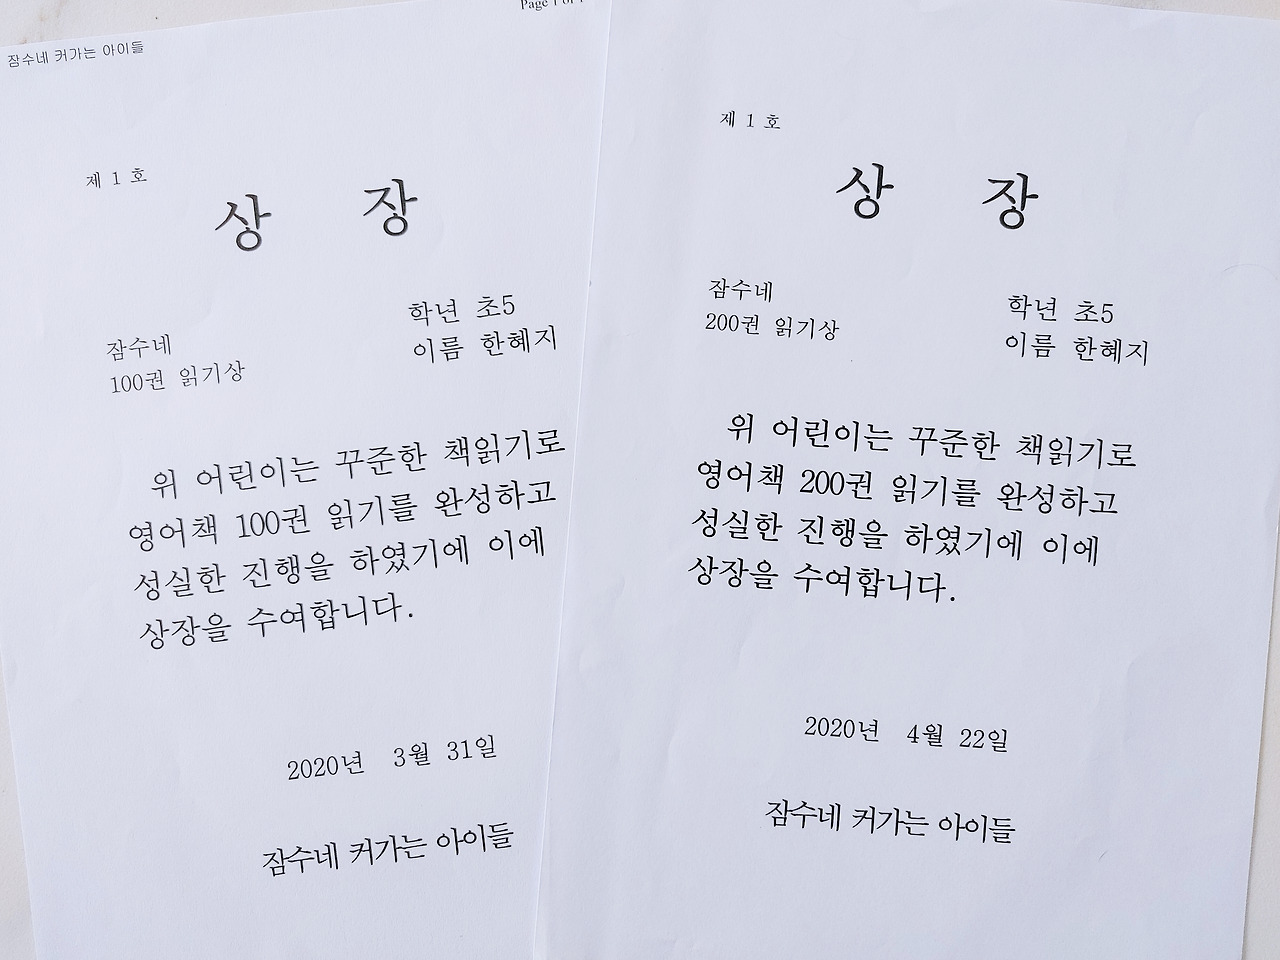 잠수네 커가는 아이들
Page 1 of 1
제 1 호
상 장
잠수네
100권 읽기상
학년 초5
이름 한혜지
위 어린이는 꾸준한 책읽기로
영어책 100권 읽기를 완성하고
성실한 진행을 하였기에 이에
상장을 수여합니다.
2020년 3월 31일
잠수네 커가는 아이들
제 1 호
상 장
잠수네
200권 읽기상
학년 초5
이름 한혜지
위 어린이는 꾸준한 책읽기로
영어책 200권 읽기를 완성하고
성실한 진행을 하였기에 이에
상장을 수여합니다.
2020년 4월 22일
잠수네 커가는 아이들